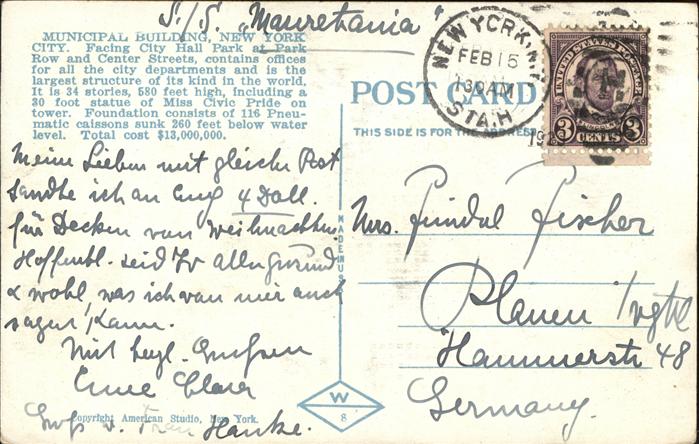 S./S. „Mauretania“
MUNICIPAL BUILDING, NEW YORK
CITY. Facing City Hall Park at Park
Row and Center Streets, contains offices
for all the city departments and is the
largest struture of its kind in the world.
It is 34 stories, 580 feet high, including a
30 foot statue of Miss Civic Pride on
tower. Foundation consists of 116 Pneu-
matic caissons sunk 260 feet below water
level. Total cost $13,000,000.
NEW YORK, N.Y.
FEB 15
130 AM
STA. H
19
UNITED STATES POSTAGE
LINCOLN
3 CENTS 3
POST CARD
THIS SIDE IS FOR THE ADDRESS
Meine Lieben mit gleicher Post
sandte ich an Eug 4 Doll.
für Decken von Weihnachten.
Hoffentl. seid Ihr alle gesund
& wohl, was ich von mir auch
sagen kann.
Mit herzl. Grüssen
Eure Clara
Gruß v. Frau Hanke.
MADE IN U.S.A.
Mrs. Fischer
Plauen i/vgtl
Hammerstr 48
Germany.
W
8
Copyright American Studio, New York.